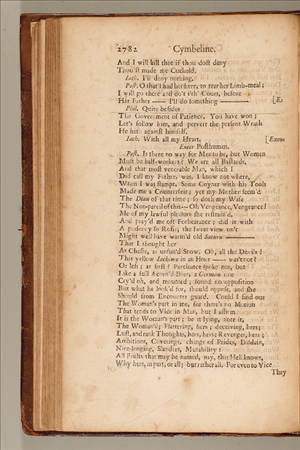 2782 Cymbeline.
And I will kill thee if thou dost deny
Thou'st made me Cuckold.
Iach. I'll deny nothing.
Post. O that I had her here, to tear her Limb-meal;
I will go there and do't i'th' Court, before
Her Father —— I'll do something —— [Ex
Phil. Quite besides
The Government of Patience. You have won;
Let's follow him, and pervert the present Wrath
He hath against himself.
Iach. With all my Heart. [Exeun
Enter Posthumus.
Post. Is there no way for Men to be, but Women
Must be half-workers? We are all Bastards,
And that most venerable Man, which I
Did call my Father, was, I know not where,
When I was stampt. Some Coyner with his Tools
Made me a Counterfeit; yet my Mother seem'd
The Dian of that time; so doth my Wife
The Non-pareil of this—Oh Vengeance, Vengeance!
Me of my lawful pleasure she restrain'd,
And pray'd me oft Forbearance; did it with
A pudency so Rosie, the sweet view on't
Might well have warm'd old Saturn ——
That I thought her
As Chaste, as unsun'd Snow. Oh, all the Devils!
This yellow Iachimo in an Hour —— was't not?
Or less; at first? Perchance he spoke not, but
Like a full Acorn'd Boar, a German one
Cry'd oh, and mounted; found no opposition
But what he look'd for, should oppose, and she
Should from Encounter guard. Could I find out
The Woman's part in me, for there's no Motion
That tends to Vice in Man, but I affirm
It is the Woman's part; be it lying, note it,
The Woman's; Flattering, hers; deceiving, hers;
Lust, and rank Thoughts, hers, hers; Revenges, hers;
Ambitions, Covetings, change of Prides, Disdain,
Nice-longing, Slanders, Mutability:
All Faults that may be named, nay, that Hell knows,
Why hers, in part, or all; but rather all. For even to Vice
They